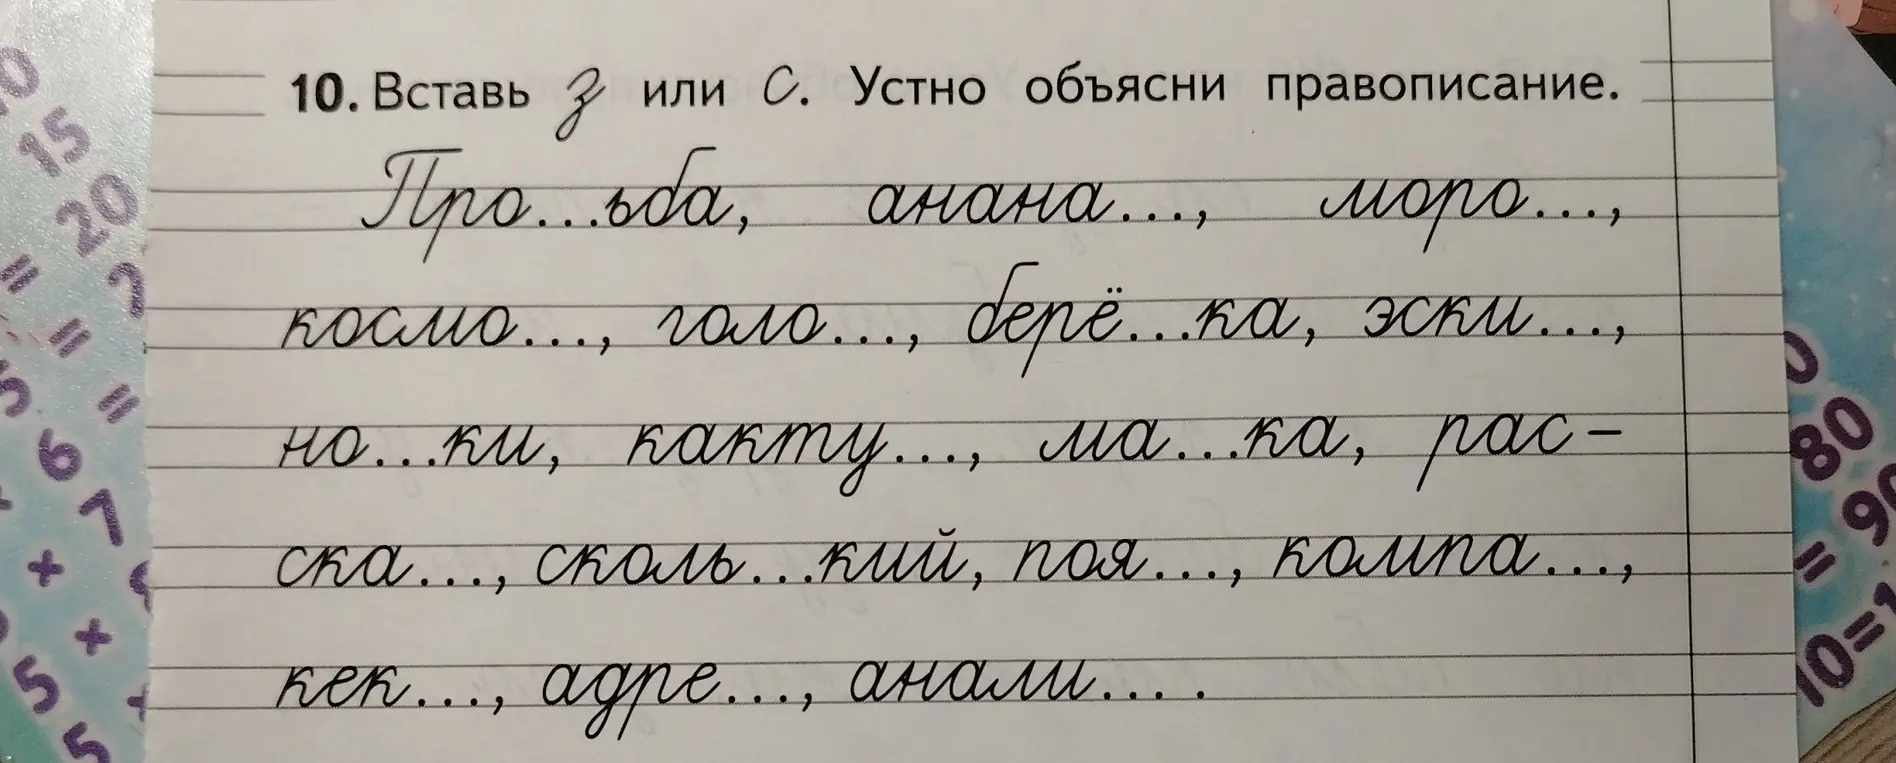 10. Вставь з или с. Устно объясни правописание.
Про...ьба, анана..., моро...,
космо..., голо..., берё...ка, эски...,
но...ки, какту..., ма...ка, рас-
ска..., сколь...кий, поя..., компа...,
кек..., адре..., анали... .
10
15
20
= 7
=
5 =
6
7
+ 6
+
5 +
5
0
80
= 90
10=1